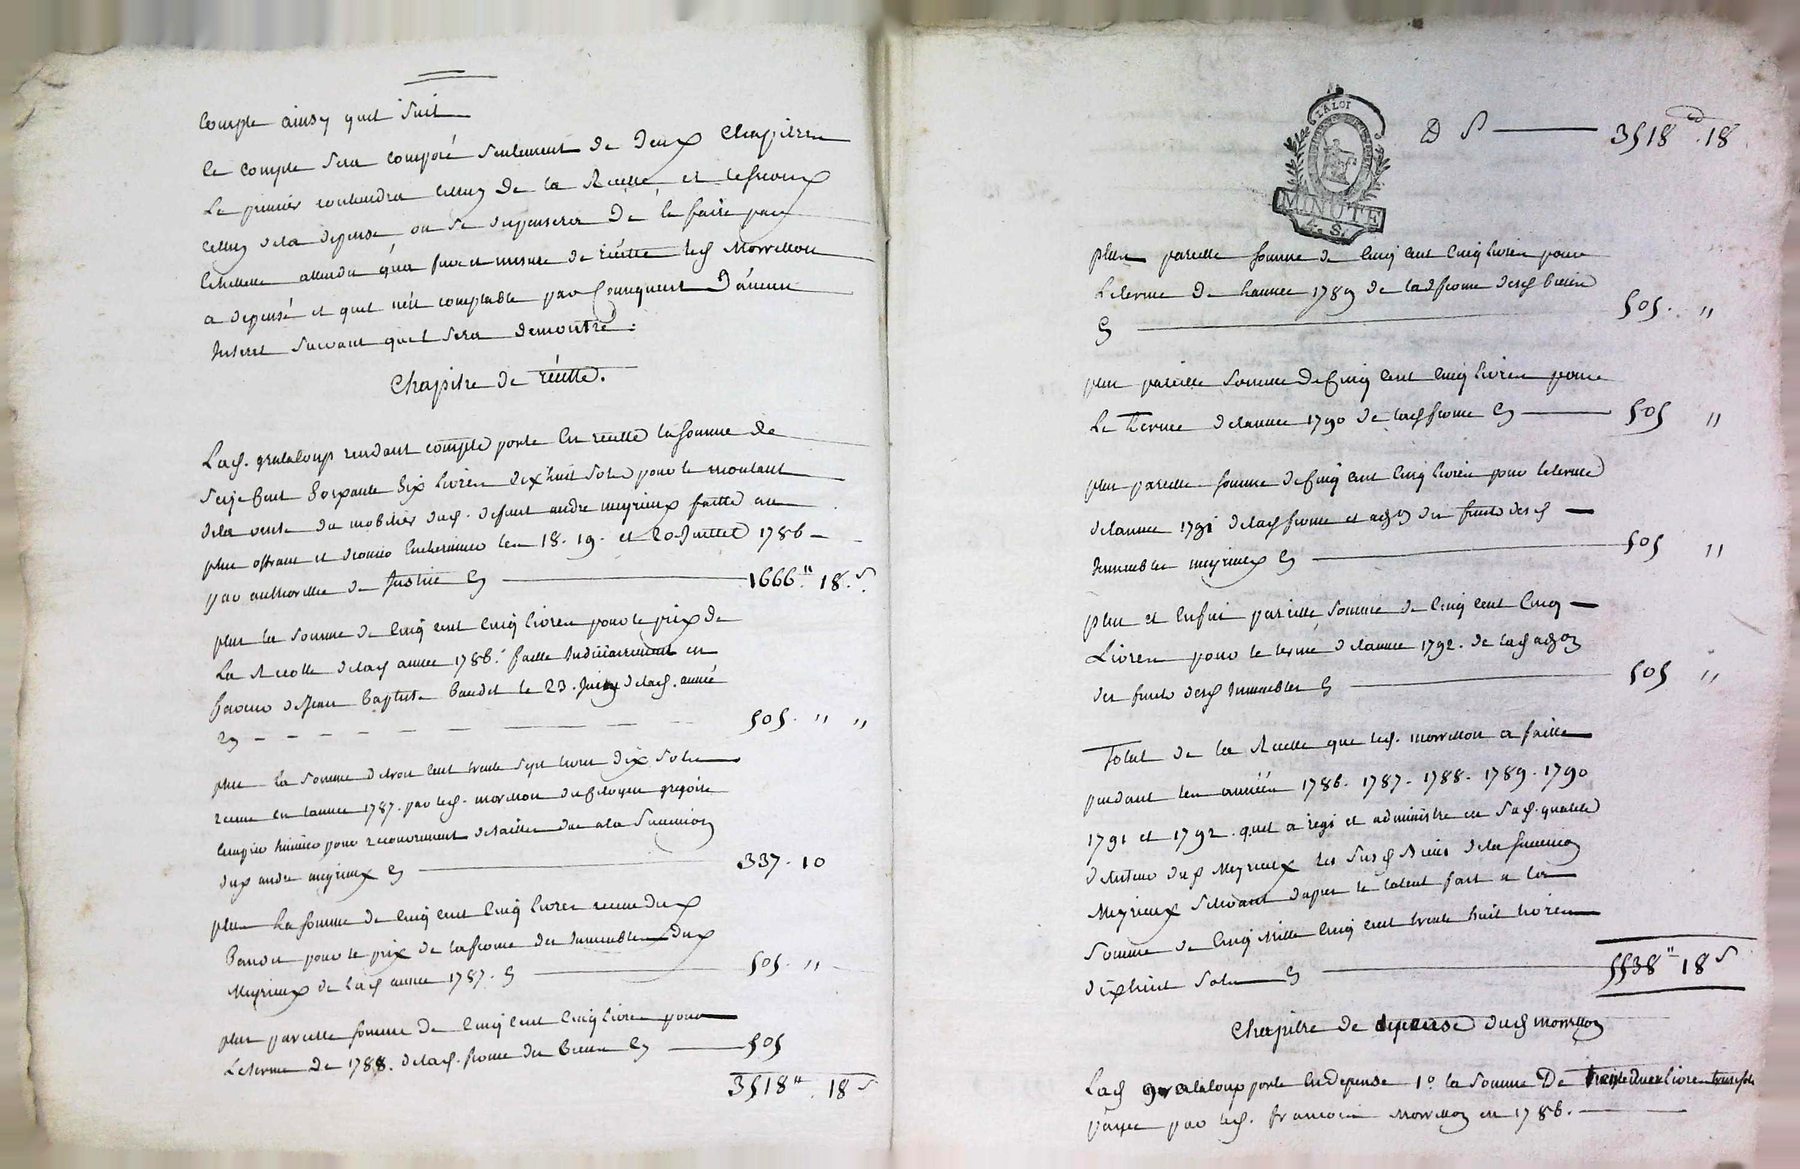 Compte ainsy quil suit
Ce compte sera composé seulement de deux Chapitres
Le premier contiendra celluy de la Recette, et le second
celluy de la depense ou se dispensera de le faire par
attendu qua fure et mesure de réette led Morrellon
a depensé et quil n'est comptable par Consequent D'aucun
Interet suivant quil sera demontré :
Chapitre de réette.
Lad. grataloup rendant compte porte En reette la somme de
seize Cent soixante six livres dix huit sols pour le montant
de la vente du mobilier dud. deffunt andre meyrieux faitte au
plus offrant et dernier Encherisseur les 18. 19. et 20 Juillet 1786 -
par authorittée de Justice Cy 1666" 18 s.
plus la somme de Cinq cent Cinq livres pour le prix de
La Recolte de lad annee 1786. faitte Judiciairement en
faveur de Jean Baptiste Baudit le 23. Juin de lad. année
Cy 505. " "
plus la somme de trois cent trente sept livres dix sols
recue en lannee 1787. par led. morrellon du Citoyen gregoire
huissier pour recouvrement de tailles due a la Succession
dud andre meyrieux Cy 337. 10
plus La somme de Cinq cent Cinq livres recue dud
Baudit pour le prix de la ferme des Immeubles dud
Meyrieux de lad annee 1787. Cy 505. "
plus pareille somme de Cinq cent Cinq livres pour
Le terme de 1788. de lad. ferme des Biens Cy 505
3518" 18 s
LA LOI
MINUTE
4. S.
D S 3518 18
plus pareille somme de Cinq cent Cinq livres pour
Le terme de lannee 1789 de lad ferme desd biens
Cy 505. "
plus pareille somme de Cinq cent Cinq livres pour
Le terme de lannee 1790 de lad ferme Cy 505 "
plus pareille somme de Cinq cent Cinq livres pour le terme
de lannee 1791 de lad ferme et des fruits desd
Immeubles meyrieux Cy 505 "
plus et Enfin pareille somme de Cinq cent Cinq
Livres pour le terme de lannee 1792. de lad
des fruits desd Immeubles Cy 505 "
Total de la Recette que led. morrellon a faitte
pendant les années 1786. 1787. 1788. 1789. 1790
1791 et 1792. quil a regi et administre en sad. qualité
de tuteur dud Meyrieux les susd Biens de la succession
Meyrieux Suivant dapres le calcul fait a la
Somme de Cinq Mille Cinq cent trente huit livres
dix huit sols Cy 5538" 18 s
Chapitre de depense dud morrellon
Lad grataloup porte En depense 1º la somme De livres sols
payée par led. francois Morrellon en 1786.